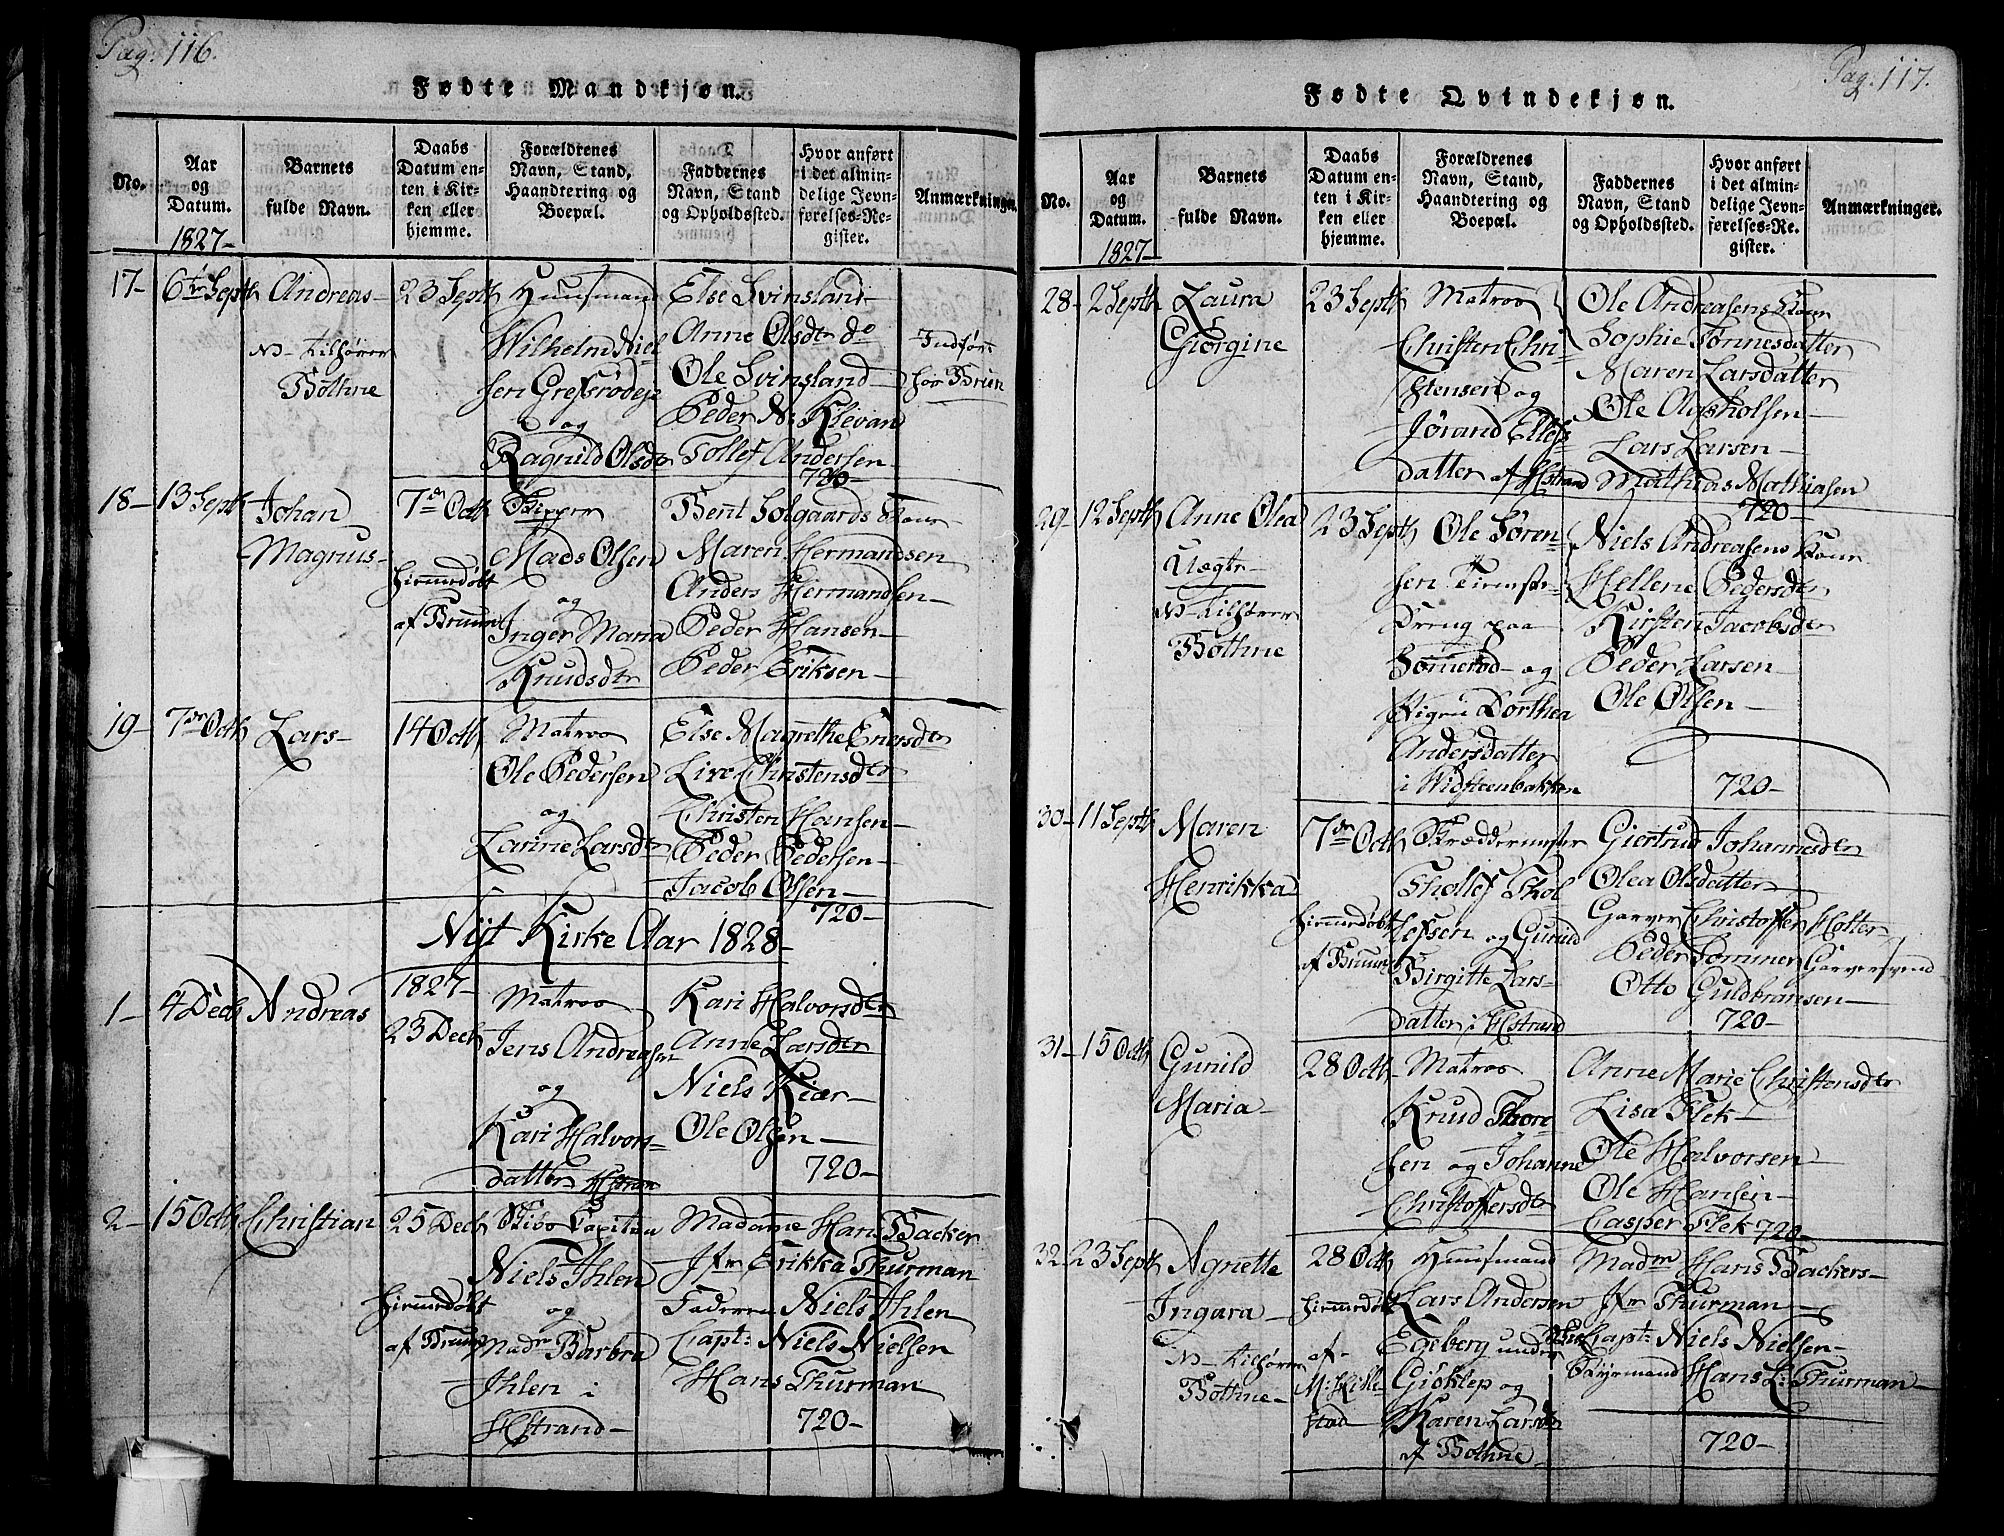 Pag: 116.
Fødte Mandkjøn.
No.
Aar og Datum.
Barnets fulde Navn.
Daabs Datum enten i Kirken eller hjemme.
Forældrenes Navn, Stand, Haandtering og Boepæl.
Faddernes Navn, Stand og Opholdssted.
Hvor anført i det almindelige Jevnførelses-Register.
Anmærkninger.
1827-
17-
6te Septb
Andreas-
N- Tilhører
Bothne
23 Septb
Huusmand
Wilhelm Niel
sen Gresrødeje
og
Ragnild Olsdtr
Else Svinsland-
Anne Olsdtr do
Ole Svinsland-
Peder N: Klevan
Tollef Andersen-
720-
Indført
for Bruun
18-
13 Septb
Johan
Magnus-
7de Octb
hiemedøbt
af Bruun
Skipper
Mads Olsen
og
Inger Maria
Knudsdtr
Bent Solgaards Kone-
Maren Hermandsen
Anders Hermandsen-
Peder Hansen-
Peder Eriksen-
19-
7de Octb
Lars-
14 Octb
Matros
Ole Pedersen
og
Larine Larsdtr
Else Magrethe Enersdtr
Live Christensdtr
Christen Hansen-
Peder Pedersen-
Jacob Olsen-
720-
Nyt Kirke Aar 1828-
1-
4 Decb
Andreas
1827-
23 Decb
Matros
Jens Andreasen
og
Kari Halvors-
datter Hstran
Kari Halvorsdtr
Anne Larsdtr
Niels Kiær-
Ole Olsen-
720-
2-
15 Octb
Christian
25 Decb
hiemedøbt
af Bruun
Skibs Capitain
Niels Ihlen
og
Madm Barbra
Ihlen i
Hstrand-
Madame Hans Backer
Jfr Erikka Thurman
Faderen Niels Ihlen
Capt: Niels Nielsen
Hans Thurman
720-
Pag: 117.
Fødte Qvindekjøn.
No.
Aar og Datum.
Barnets fulde Navn.
Daabs Datum enten i Kirken eller hjemme.
Forældrenes Navn, Stand, Haandtering og Boepæl.
Faddernes Navn, Stand og Opholdssted.
Hvor anført i det almindelige Jevnførelses-Register.
Anmærkninger.
1827-
28-
2 Septb
Laura
Giørgine
23 Septb
Matros
Christen Chri-
stensen og
Jørand Ellefs
datter af Hstrand
Ole Andreasens Kone
Sophie Tønnesdatter
Maren Larsdatter
Ole Aasholsen-
Lars Larsen-
Mathias Mathiasen
720-
29-
12 Septb
Anne Olea
Uægte-
N- Tilhører
Bothne
23 Septb
Ole Søren-
sen
Dreng paa
Sømerød- og
Pigen Dorthea
Andersdatter
i Widsteenbakken
Niels Andreasens Kone
Hellene Pedersdtr
Kirsten Jacobsdtr
Peder Larsen-
Ole Olsen-
720-
30-
11 Septb
Maren
Henrikka
7de Octb
hiemedøbt
af Bruun
Skræddermester
Thollef Thol
lefsen og Gunild
Birgitte Lars-
datter i Hstrand
Giertrud Johannesdtr
Olea Olsdatter
Garver Christoffer Holter-
Peder Sommer Garversvend
Otto Guldbransen-
720-
31-
15 Octb
Gunild
Maria-
28 Octb
Matros
Knud Thore-
sen og Johanne
Christoffersdtr
Anne Marie Christensdtr
Lisa Flek-
Ole Halvorsen
Ole Hansen-
Casper Flek 720-
32-
23 Septb
Agnette
Ingara-
N- Tilhører
Bothne-
28 Octb
hiemedøbt
af-
M: Hille
stad
Huusmand
Lars Andersen
Egeberg under
Gioklep og
Karen Larsdtr
af Bothne
Madm Hans Backers-
Jfr Thurman-
Capt: Niels Nielsen-
Styrmand Hans L: Thurman-
720-